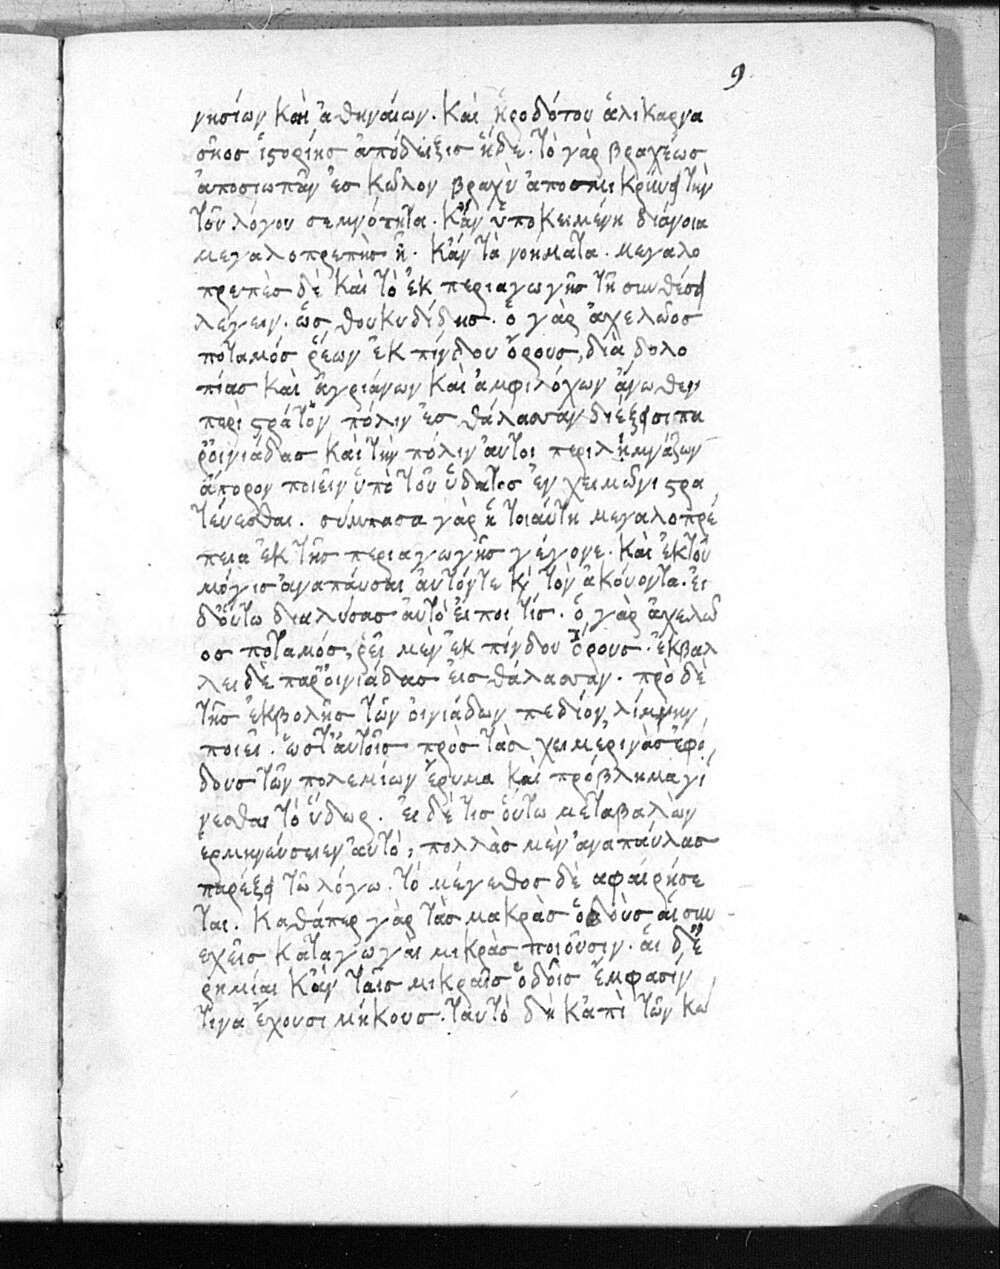 9
νησίων καὶ ἀθηναίων. καὶ ἡροδότου ἁλικαρνα
σῆος ἱστορίης ἀπόδειξις ἥδε. τὸ γὰρ βραχέως
ἀποσιωπᾶν ἐς κῶλον βραχὺ ἀποσμικρύνει τὴν
τοῦ λόγου σεμνότητα. κἂν ὑποκειμένη διάνοια
μεγαλοπρεπὴς ἦ. κἂν τὰ νοήματα. μεγαλο
πρεπὲς δὲ καὶ τὸ ἐκ περιαγωγῆς τῆ συνθέσει
λέγειν. ὡς θουκυδίδης. ὁ γὰρ ἀχελῶος
ποταμός ῥέων ἐκ πίνδου ὄρους, διὰ δολο
πίας καὶ ἀγριάνων καὶ ἀμφιλόχων ἄνωθεν
περὶ στρατὸν πόλιν ἐς θάλασσαν διέξεισι πα
ροινιάδας καὶ τὴν πόλιν αὐτοι περιλημνάζων
ἄπορον ποιεῖν ὑπὸ τοῦ ὕδατος ἐν χειμῶνι στρα
τεύεσθαι. σύμπασα γὰρ ἡ τοιαύτη μεγαλοπρέ
πεια ἐκ τῆς περιαγωγῆς γέγονε. καὶ ἐκ τοῦ
μόγις ἀναπαύσαι αὐτόν τε κὶ τὸν ἀκούοντα. εἰ
δ' οὕτω διαλύσας αὐτὸ εἴποι τίς. ὁ γὰρ ἀχελῶ
ος ποταμός, ῥεῖ μὲν ἐκ πίνδου ὄρους. ἐκβάλ
λει δὲ παῤ οἰνιάδας εἰς θάλασσαν. πρὸ δὲ
τῆς ἐκβολῆς τῶν οἰνιάδων πεδίον λίμνην
ποιεῖ. ὥστ' αὐτοῖς πρὸς τὰς χειμερινὰς ἐφό
δους τῶν πολεμίων ἔρυμα καὶ πρόβλημα γί
νεσθαι τὸ ὕδωρ. εἰ δέ τις οὕτω μεταβαλὼν
ἑρμηνεύσειεν αὐτὸ, πολλὰς μὲν ἀναπαύλας
παρέξει τῶ λόγω. τὸ μέγεθος δὲ ἀφαιρήσε
ται. καθάπερ γὰρ τὰς μακρὰς ὁδοὺς αἱ συν
εχεῖς καταγωγαὶ μικρὰς ποιοῦσιν. αἱ δ' ἐ
ρημίαι κἀν ταῖς μικραῖς ὁδοῖς ἔμφασίν
τινα ἔχουσι μήκους. ταυτὸ δὴ κἀπὶ τῶν κώ